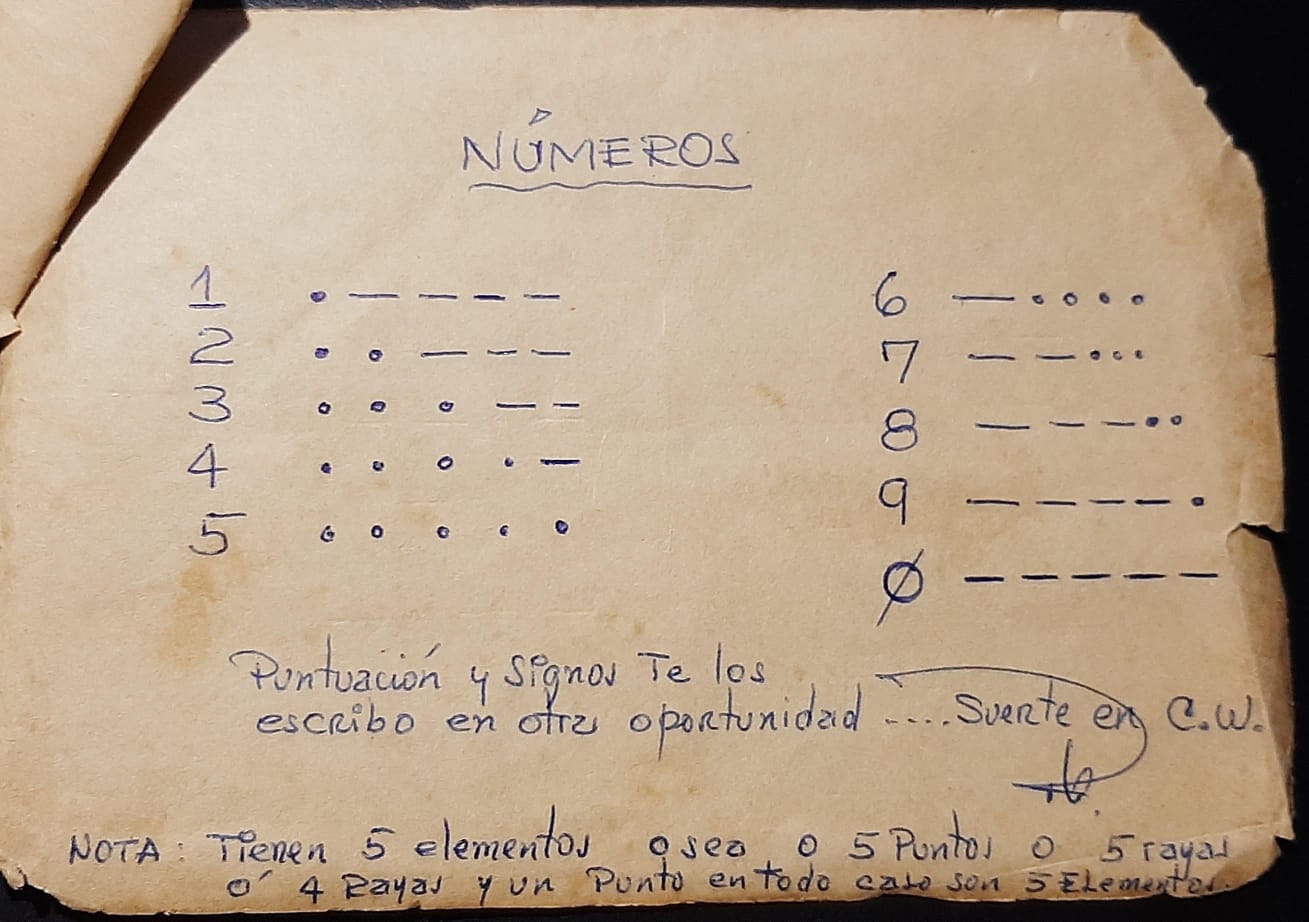 NÚMEROS
1 . — — — —
2 . . — — —
3 . . . — —
4 . . . . —
5 . . . . .
6 — . . . .
7 — — . . .
8 — — — . .
9 — — — — .
Ø — — — — —
Puntuación y Signos Te los
escribo en otra oportunidad ....Suerte en C.W.
NOTA: Tienen 5 elementos o sea o 5 Puntos o 5 rayas
ó 4 Rayas y un Punto en todo caso son 5 Elementos.